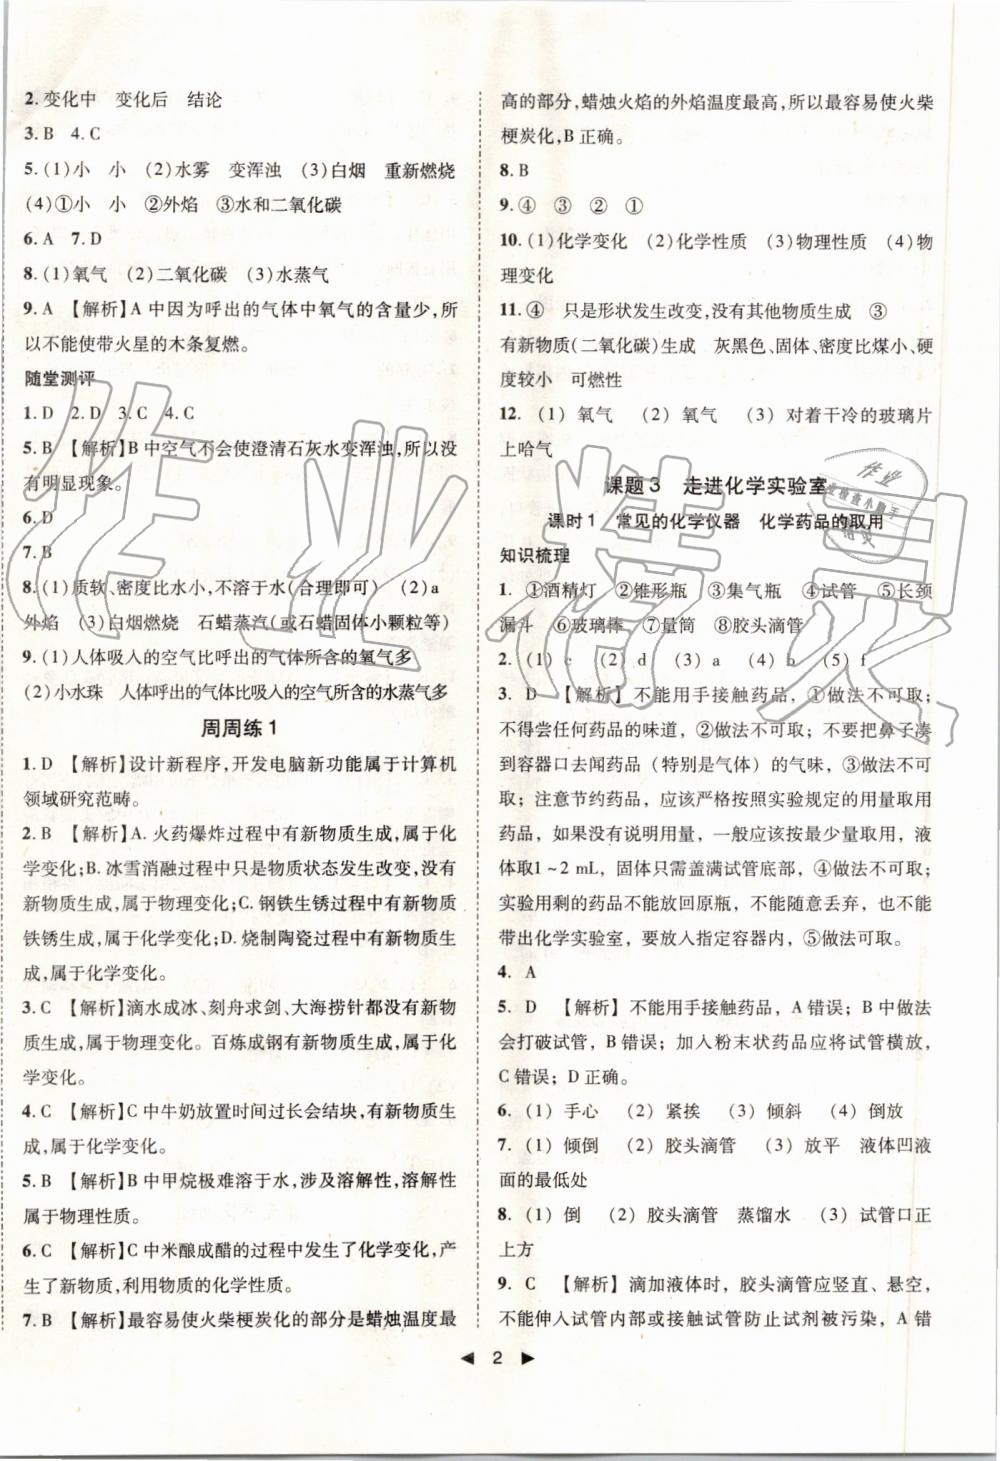 2.变化中　变化后　结论
3.B　4.C
5.(1)小　小　(2)水雾　变浑浊　(3)白烟　重新燃烧
(4)①小　小　②外焰　③水和二氧化碳
6.A　7.D
8.(1)氧气　(2)二氧化碳　(3)水蒸气
9.A　【解析】A中因为呼出的气体中氧气的含量少,所
以不能使带火星的木条复燃。
随堂测评
1.D　2.D　3.C　4.C
5.B　【解析】B中空气不会使澄清石灰水变浑浊,所以没
有明显现象。
6.D
7.B
8.(1)质软、密度比水小,不溶于水(合理即可)　(2)a
外焰　(3)白烟燃烧　石蜡蒸汽(或石蜡固体小颗粒等)
9.(1)人体吸入的空气比呼出的气体所含的氧气多
(2)小水珠　人体呼出的气体比吸入的空气所含的水蒸气多
周周练1
1.D　【解析】设计新程序,开发电脑新功能属于计算机
领域研究范畴。
2.B　【解析】A.火药爆炸过程中有新物质生成,属于化
学变化;B.冰雪消融过程中只是物质状态发生改变,没有
新物质生成,属于物理变化;C.钢铁生锈过程中有新物质
铁锈生成,属于化学变化;D.烧制陶瓷过程中有新物质生
成,属于化学变化。
3.C　【解析】滴水成冰、刻舟求剑、大海捞针都没有新物
质生成,属于物理变化。百炼成钢有新物质生成,属于化
学变化。
4.C　【解析】C中牛奶放置时间过长会结块,有新物质生
成,属于化学变化。
5.B　【解析】B中甲烷极难溶于水,涉及溶解性,溶解性
属于物理性质。
6.C　【解析】C中米酿成醋的过程中发生了化学变化,产
生了新物质,利用物质的化学性质。
7.B　【解析】最容易使火柴梗炭化的部分是蜡烛温度最
高的部分,蜡烛火焰的外焰温度最高,所以最容易使火柴
梗炭化,B正确。
8.B
9.④　③　②　①
10.(1)化学变化　(2)化学性质　(3)物理性质　(4)物
理变化
11.④　只是形状发生改变,没有其他物质生成　③
有新物质(二氧化碳)生成　灰黑色、固体、密度比煤小、硬
度较小　可燃性
12.(1)氧气　(2)氧气　(3)对着干冷的玻璃片
上哈气
课题3　走进化学实验室
课时1　常见的化学仪器　化学药品的取用
知识梳理
1.①酒精灯　②锥形瓶　③集气瓶　④试管　⑤长颈
漏斗　⑥玻璃棒　⑦量筒　⑧胶头滴管
2.(1)c　(2)d　(3)a　(4)b　(5)f
3.D　【解析】不能用手接触药品,①做法不可取;
不得尝任何药品的味道,②做法不可取;不要把鼻子凑
到容器口去闻药品(特别是气体)的气味,③做法不可
取;注意节约药品,应该严格按照实验规定的用量取用
药品,如果没有说明用量,一般应该按最少量取用,液
体取1~2 mL,固体只需盖满试管底部,④做法不可取;
实验用剩的药品不能放回原瓶,不能随意丢弃,也不能
带出化学实验室,要放入指定容器内,⑤做法可取。
4.A
5.D　【解析】不能用手接触药品,A错误;B中做法
会打破试管,B错误;加入粉末状药品应将试管横放,
C错误;D正确。
6.(1)手心　(2)紧挨　(3)倾斜　(4)倒放
7.(1)倾倒　(2)胶头滴管　(3)放平　液体凹液
面的最低处
8.(1)倒　(2)胶头滴管　蒸馏水　(3)试管口正
上方
9.C　【解析】滴加液体时,胶头滴管应竖直、悬空,
不能伸入试管内部或接触试管防止试剂被污染,A错
◀ 2 ▶
作业精灵
作业
业检查小助手
精灵